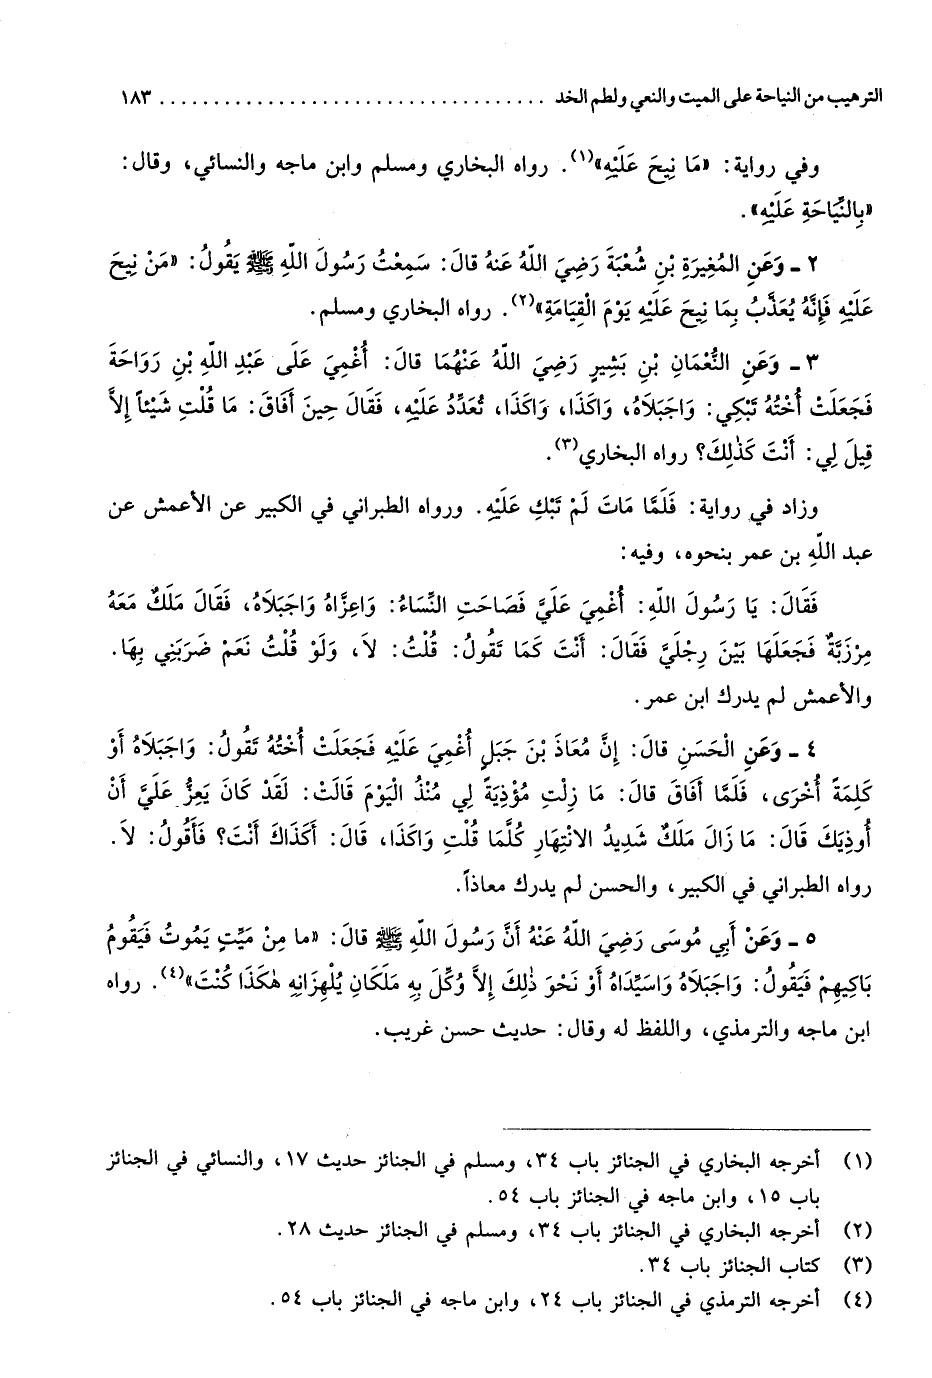 الترهيب من النياحة على الميت والنعي ولطم الخد .................................... ١٨٣
وفي رواية: «مَا نِيحَ عَلَيْهِ»(١). رواه البخاري ومسلم وابن ماجه والنسائي، وقال:
«بِالنِّيَاحَةِ عَلَيْهِ».
٢ ـ وَعَنِ المُغِيرَةِ بْنِ شُعْبَةَ رَضِيَ اللَّهُ عَنْهُ قالَ: سَمِعْتُ رَسُولَ اللَّهِ ﷺ يَقُولُ: «مَنْ نِيحَ
عَلَيْهِ فَإِنَّهُ يُعَذَّبُ بِمَا نِيحَ عَلَيْهِ يَوْمَ الْقِيَامَةِ»(٢). رواه البخاري ومسلم.
٣ ـ وَعَنِ النُّعْمَانِ بْنِ بَشِيرٍ رَضِيَ اللَّهُ عَنْهُمَا قالَ: أُغْمِيَ عَلَى عَبْدِ اللَّهِ بْنِ رَوَاحَةَ
فَجَعَلَتْ أُخْتُهُ تَبْكِي: وَاجَبَلَاهُ، وَاكَذَا، وَاكَذَا، تُعَدِّدُ عَلَيْهِ، فَقَالَ حِينَ أَفَاقَ: مَا قُلْتِ شَيْئاً إِلاَّ
قِيلَ لِي: أَنْتَ كَذٰلِكَ؟ رواه البخاري(٣).
وزاد في رواية: فَلَمَّا مَاتَ لَمْ تَبْكِ عَلَيْهِ. ورواه الطبراني في الكبير عن الأعمش عن
عبد اللَّهِ بن عمر بنحوه، وفيه:
فَقَالَ: يَا رَسُولَ اللهِ: أُغْمِيَ عَلَيَّ فَصَاحَتِ النِّسَاءُ: وَاعِزَّاهُ وَاجَبَلَاهُ، فَقَالَ مَلَكٌ مَعَهُ
مِرْزَبَّةٌ فَجَعَلَهَا بَيْنَ رِجْلَيَّ فَقَالَ: أَنْتَ كَمَا تَقُولُ: قُلْتُ: لاَ، وَلَوْ قُلْتُ نَعَمْ ضَرَبَنِي بِهَا.
والأعمش لم يدرك ابن عمر.
٤ ـ وَعَنِ الْحَسَنِ قالَ: إِنَّ مُعَاذَ بْنَ جَبَلٍ أُغْمِيَ عَلَيْهِ فَجَعَلَتْ أُخْتُهُ تَقُولُ: وَاجَبَلَاهُ أَوْ
كَلِمَةً أُخْرَى، فَلَمَّا أَفَاقَ قالَ: مَا زِلْتِ مُؤْذِيَةً لِي مُنْذُ الْيَوْمَ قَالَتْ: لَقَدْ كَانَ يَعِزُّ عَلَيَّ أَنْ
أُوذِيَكَ قَالَ: مَا زَالَ مَلَكٌ شَدِيدُ الانْتِهَارِ كُلَّمَا قُلْتِ وَاكَذَا، قَالَ: أَكَذَاكَ أَنْتَ؟ فَأَقُولُ: لاَ.
رواه الطبراني في الكبير، والحسن لم يدرك معاذاً.
٥ ـ وَعَنْ أَبِي مُوسَى رَضِيَ اللَّهُ عَنْهُ أَنَّ رَسُولَ اللَّهِ ﷺ قالَ: «ما مِنْ مَيِّتٍ يَمُوتُ فَيَقُومُ
بَاكِيهِمْ فَيَقُولُ: وَاجَبَلَاهُ وَاسَيِّدَاهُ أَوْ نَحْوَ ذٰلِكَ إِلاَّ وُكِّلَ بِهِ مَلَكَانِ يُلْهِزَانِهِ هٰكَذَا كُنْتَ»(٤). رواه
ابن ماجه والترمذي، واللفظ له وقال: حديث حسن غريب.
(١) أخرجه البخاري في الجنائز باب ٣٤، ومسلم في الجنائز حديث ١٧، والنسائي في الجنائز
باب ١٥، وابن ماجه في الجنائز باب ٥٤.
(٢) أخرجه البخاري في الجنائز باب ٣٤، ومسلم في الجنائز حديث ٢٨.
(٣) كتاب الجنائز باب ٣٤.
(٤) أخرجه الترمذي في الجنائز باب ٢٤، وابن ماجه في الجنائز باب ٥٤.